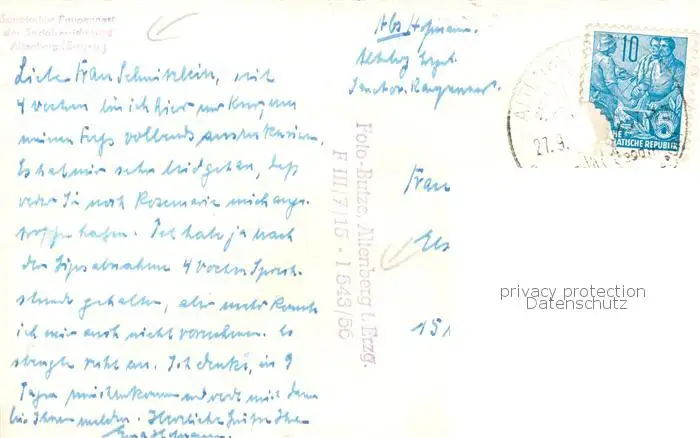 Sanatorium Raupennest
der Sozialversicherung
Altenberg (Erzgeb.)
Liebe Frau Schnitzlein, seit
4 Wochen bin ich hier zur Kur, um
meinen Fuß vollends auszukurieren.
Es hat mir sehr leid getan, daß
weder Sie noch Rosemarie mich ange-
troffen haben. Ich habe ja nach
der Gipsabnahme 4 Wochen Sprech-
stunde gehalten, aber mehr konnte
ich mir auch nicht vornehmen. Es
strengte sehr an. Ich denke, in 9
Tagen zurückzukommen und werde mich dann
bei Ihnen melden. Herzliche Grüße Ihre
Hofmann.
Abs Hofmann.
Altenberg Erzgeb.
Sanator. Raupennest.
Foto-Butze, Altenberg i. Erzg.
F III/7/15 - I 843/56
Frau
Els
151
10
27.9.
CHE
RATISCHE REPUBLIK
privacy protection
Datenschutz